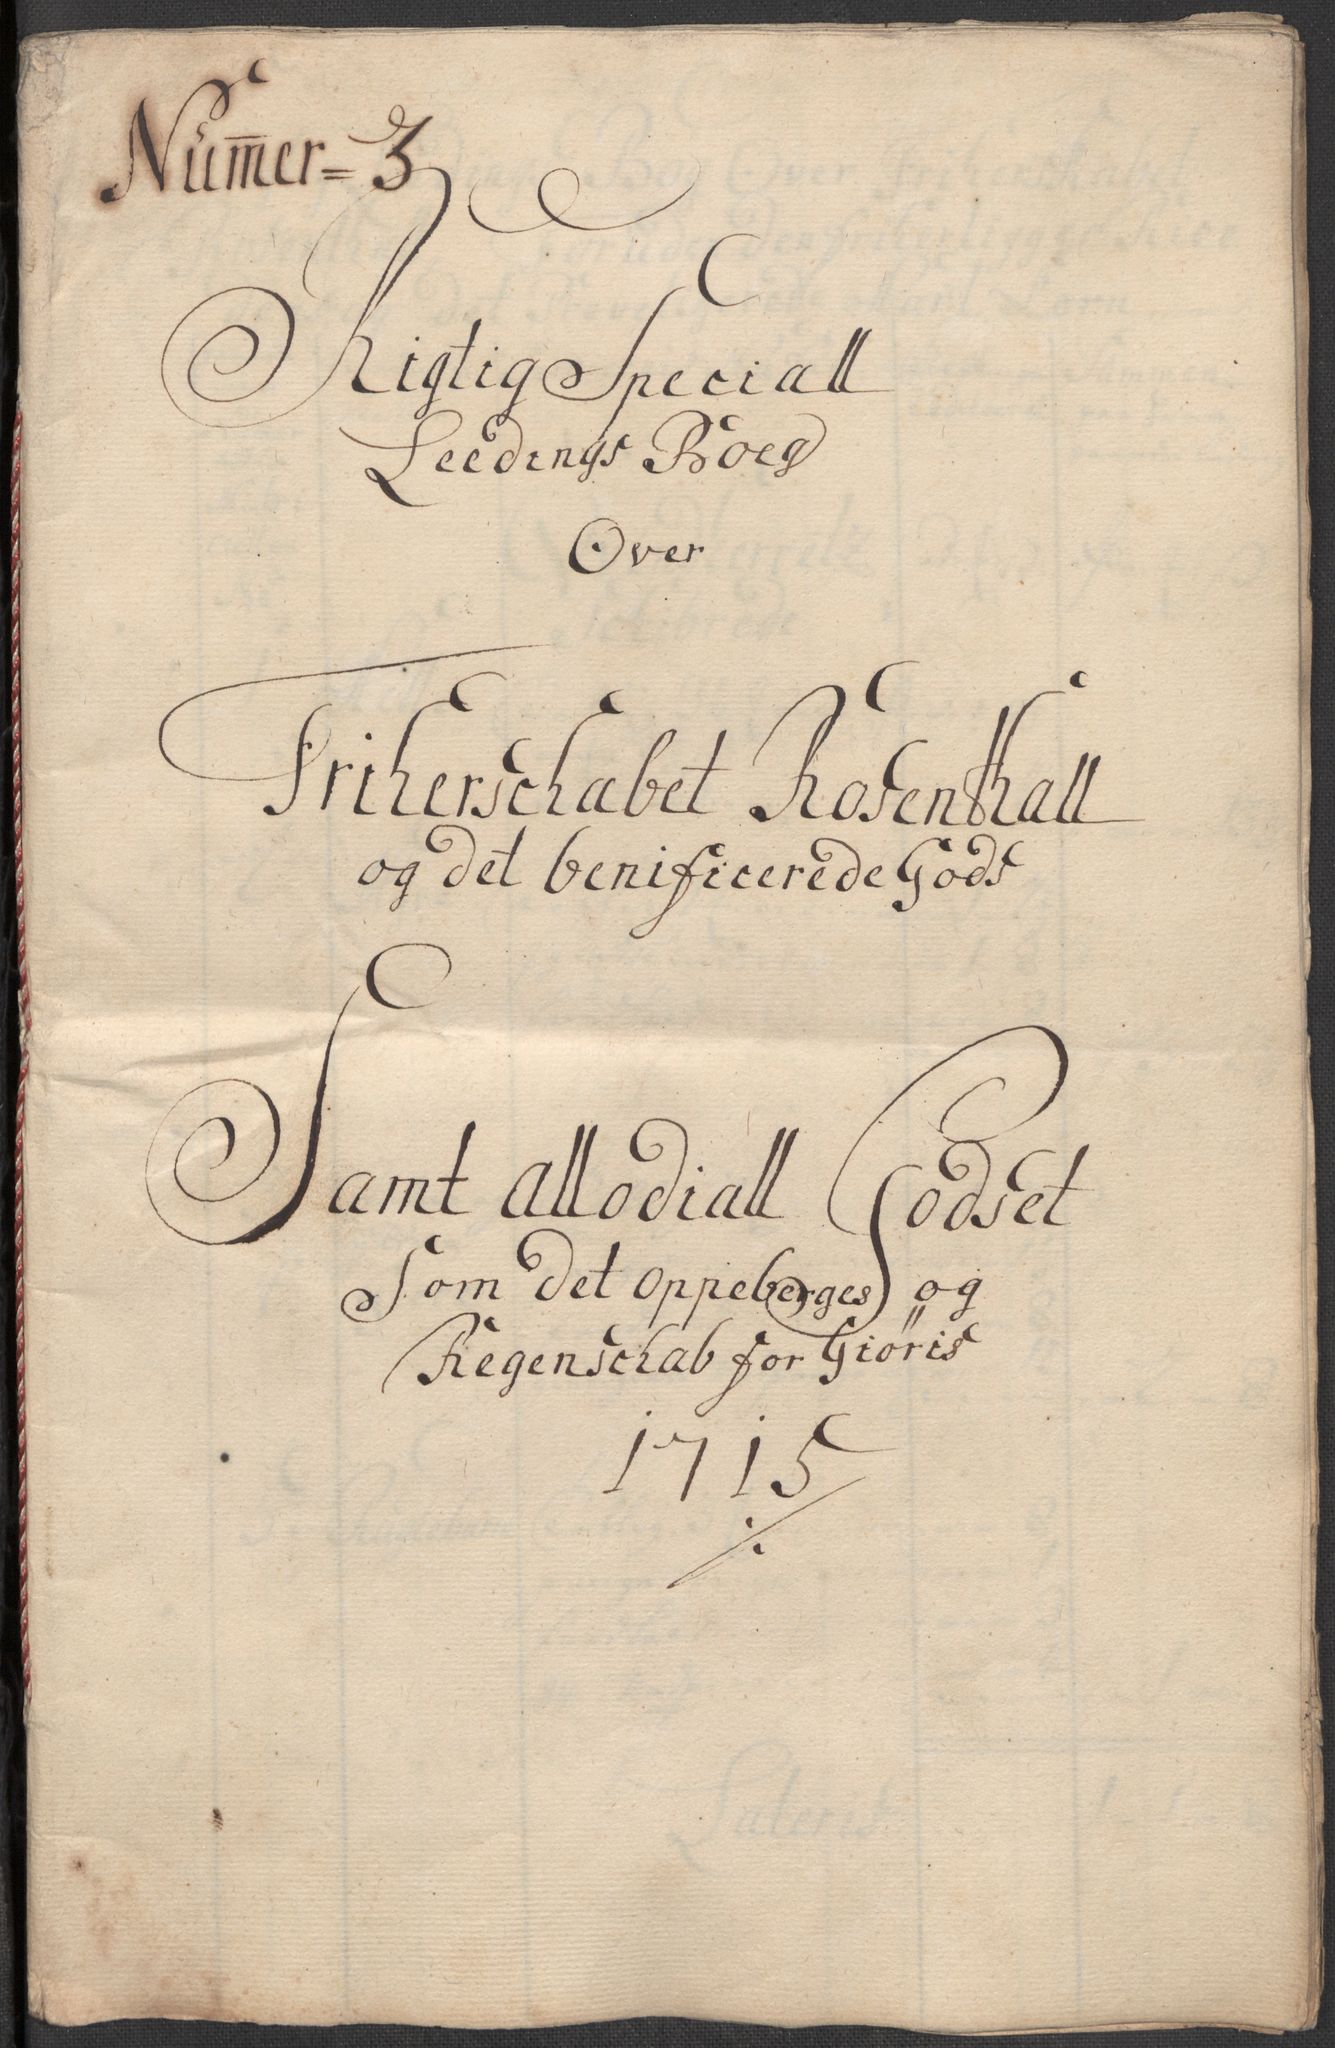 Num̅er= 3
Rigtig Speciall
Leedings Boeg
Over
Friherschabet Rosenthall
og det benificerede Gods
Samt allodiall Godset
Som det oppeberges og
Regenschab for Giöris
1715
Lateris